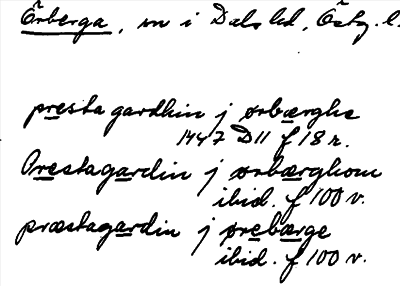 Örberga, sn i Dals hd, Östg. l.
presta gardhin j ørbærghe
1447 D11 f 18 r.
Prestagardin j ørbærghom
ibid. f 100 v.
præstagardin j ørebærge
ibid. f 100 v.